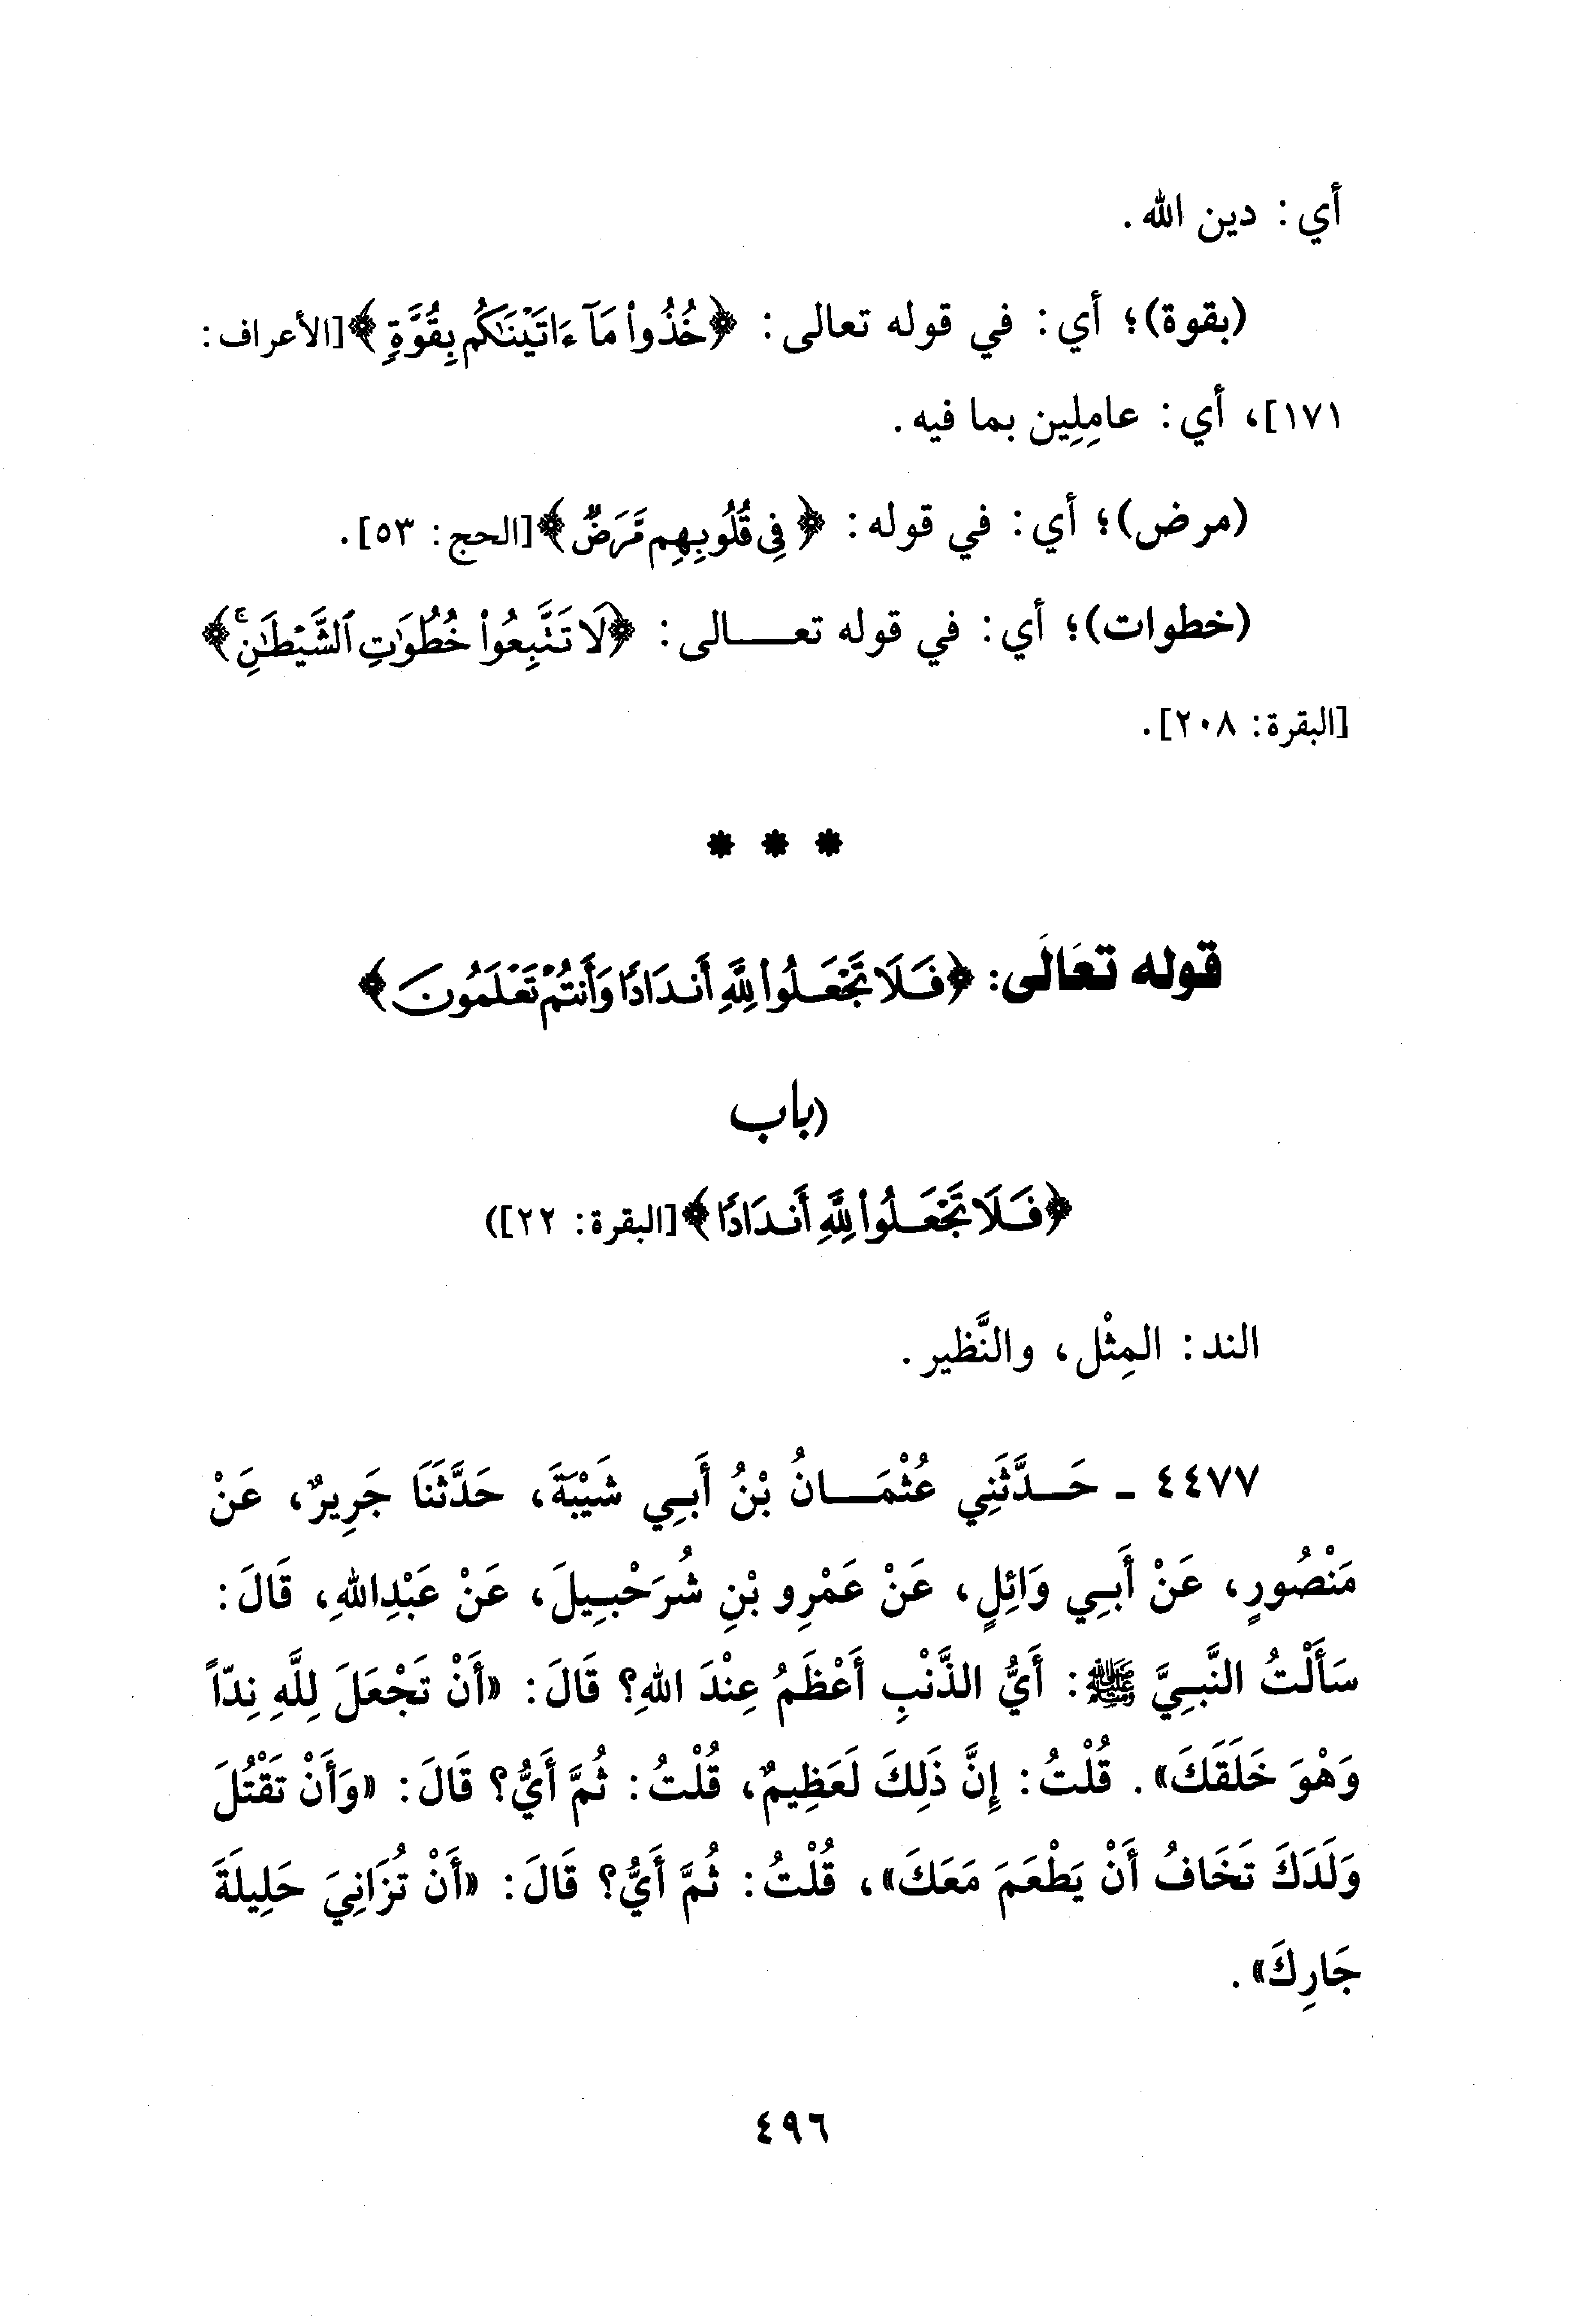 أي: دين الله.
(بقوة)؛ أي: في قوله تعالى: ﴿خُذُوا۟ مَآ ءَاتَيْنَٰكُم بِقُوَّةٍ﴾[الأعراف:
١٧١]، أي: عامِلِين بما فيه.
(مرض)؛ أي: في قوله: ﴿فِى قُلُوبِهِم مَّرَضٌ﴾[الحج: ٥٣].
(خطوات)؛ أي: في قوله تعـــالى: ﴿لَا تَتَّبِعُوا۟ خُطُوَٰتِ ٱلشَّيْطَٰنِۚ﴾
[البقرة: ٢٠٨].
* * *
قوله تعَالَى: ﴿فَلَا تَجْعَلُوا۟ لِلَّهِ أَندَادًا وَأَنتُمْ تَعْلَمُونَ﴾
(باب
﴿فَلَا تَجْعَلُوا۟ لِلَّهِ أَندَادًا﴾[البقرة: ٢٢])
الند: المِثْل، والنَّظير.
٤٤٧٧ ـ حَـدَّثَنِي عُثْمَـــانُ بْنُ أَبـِي شَيْبَةَ، حَدَّثَنَا جَرِيرٌ، عَنْ
مَنْصُورٍ، عَنْ أَبـِي وَائِلٍ، عَنْ عَمْرِو بْنِ شُرَحْبـِيلَ، عَنْ عَبْدِاللهِ، قَالَ:
سَأَلْتُ النَّبـِيَّ ﷺ: أَيُّ الذَّنْبِ أَعْظَمُ عِنْدَ اللهِ؟ قَالَ: «أَنْ تَجْعَلَ لِلَّهِ نِدّاً
وَهْوَ خَلَقَكَ». قُلْتُ: إِنَّ ذَلِكَ لَعَظِيمٌ، قُلْتُ: ثُمَّ أَيُّ؟ قَالَ: «وَأَنْ تَقْتُلَ
وَلَدَكَ تَخَافُ أَنْ يَطْعَمَ مَعَكَ»، قُلْتُ: ثُمَّ أَيُّ؟ قَالَ: «أَنْ تُزَانِيَ حَلِيلَةَ
جَارِكَ».
٤٩٦